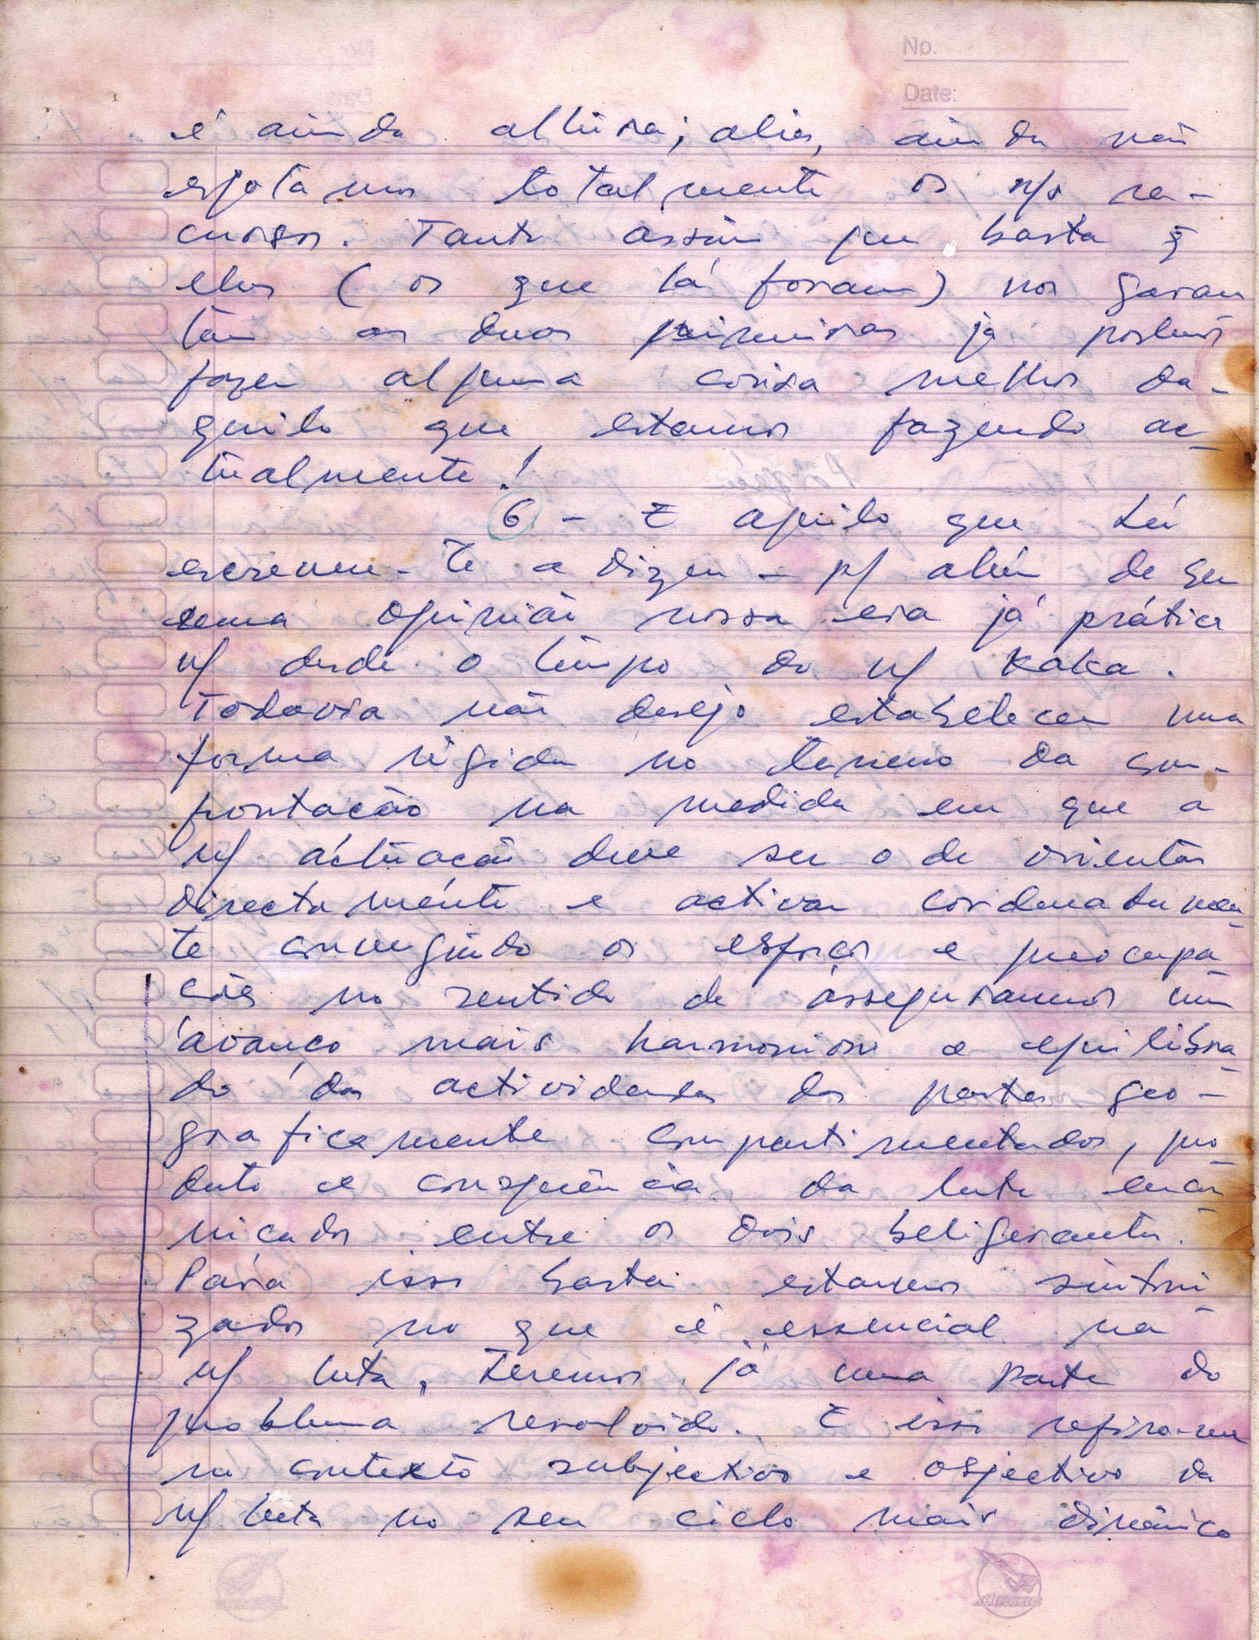 No.
Date:
é ainda altura; aliás, ainda não
esgotamos totalmente os n/s re-
cursos. Tanto assim que basta q̃
eles (os que lá foram) nos garan
tam as duas primeiras já podemos
fazer alguma coisa melhor da-
quilo que estamos fazendo ac-
tualmente!
6 - E aquilo que
escreveu-te a dizer - p/ além de ser
uma opinião nossa era já prática
n/ desde o tempo do n/ Kaka.
Todavia não desejo estabelecer uma
forma rígida no terreno da com-
portação na medida em que a
n/ actuação deve ser o de orientar
directamente e activar cordenadamen-
te conjugindo os esforços e preocupa-
ções no sentido de assegurarmos um
avanço mais harmonioso e equilibra-
do das actividades das partes geo-
graficamente compartimentados, pro
duto e consequência da luta encar-
nicada entre os dois beligerantes.
Para isso basta estarmos sintoni-
zados no que é essencial na
n/ luta, teremos já uma parte do
problema resolvido. E isso refiro-me
no contexto subjectivo e objectivo da
n/ luta no seu ciclo mais dinâmico